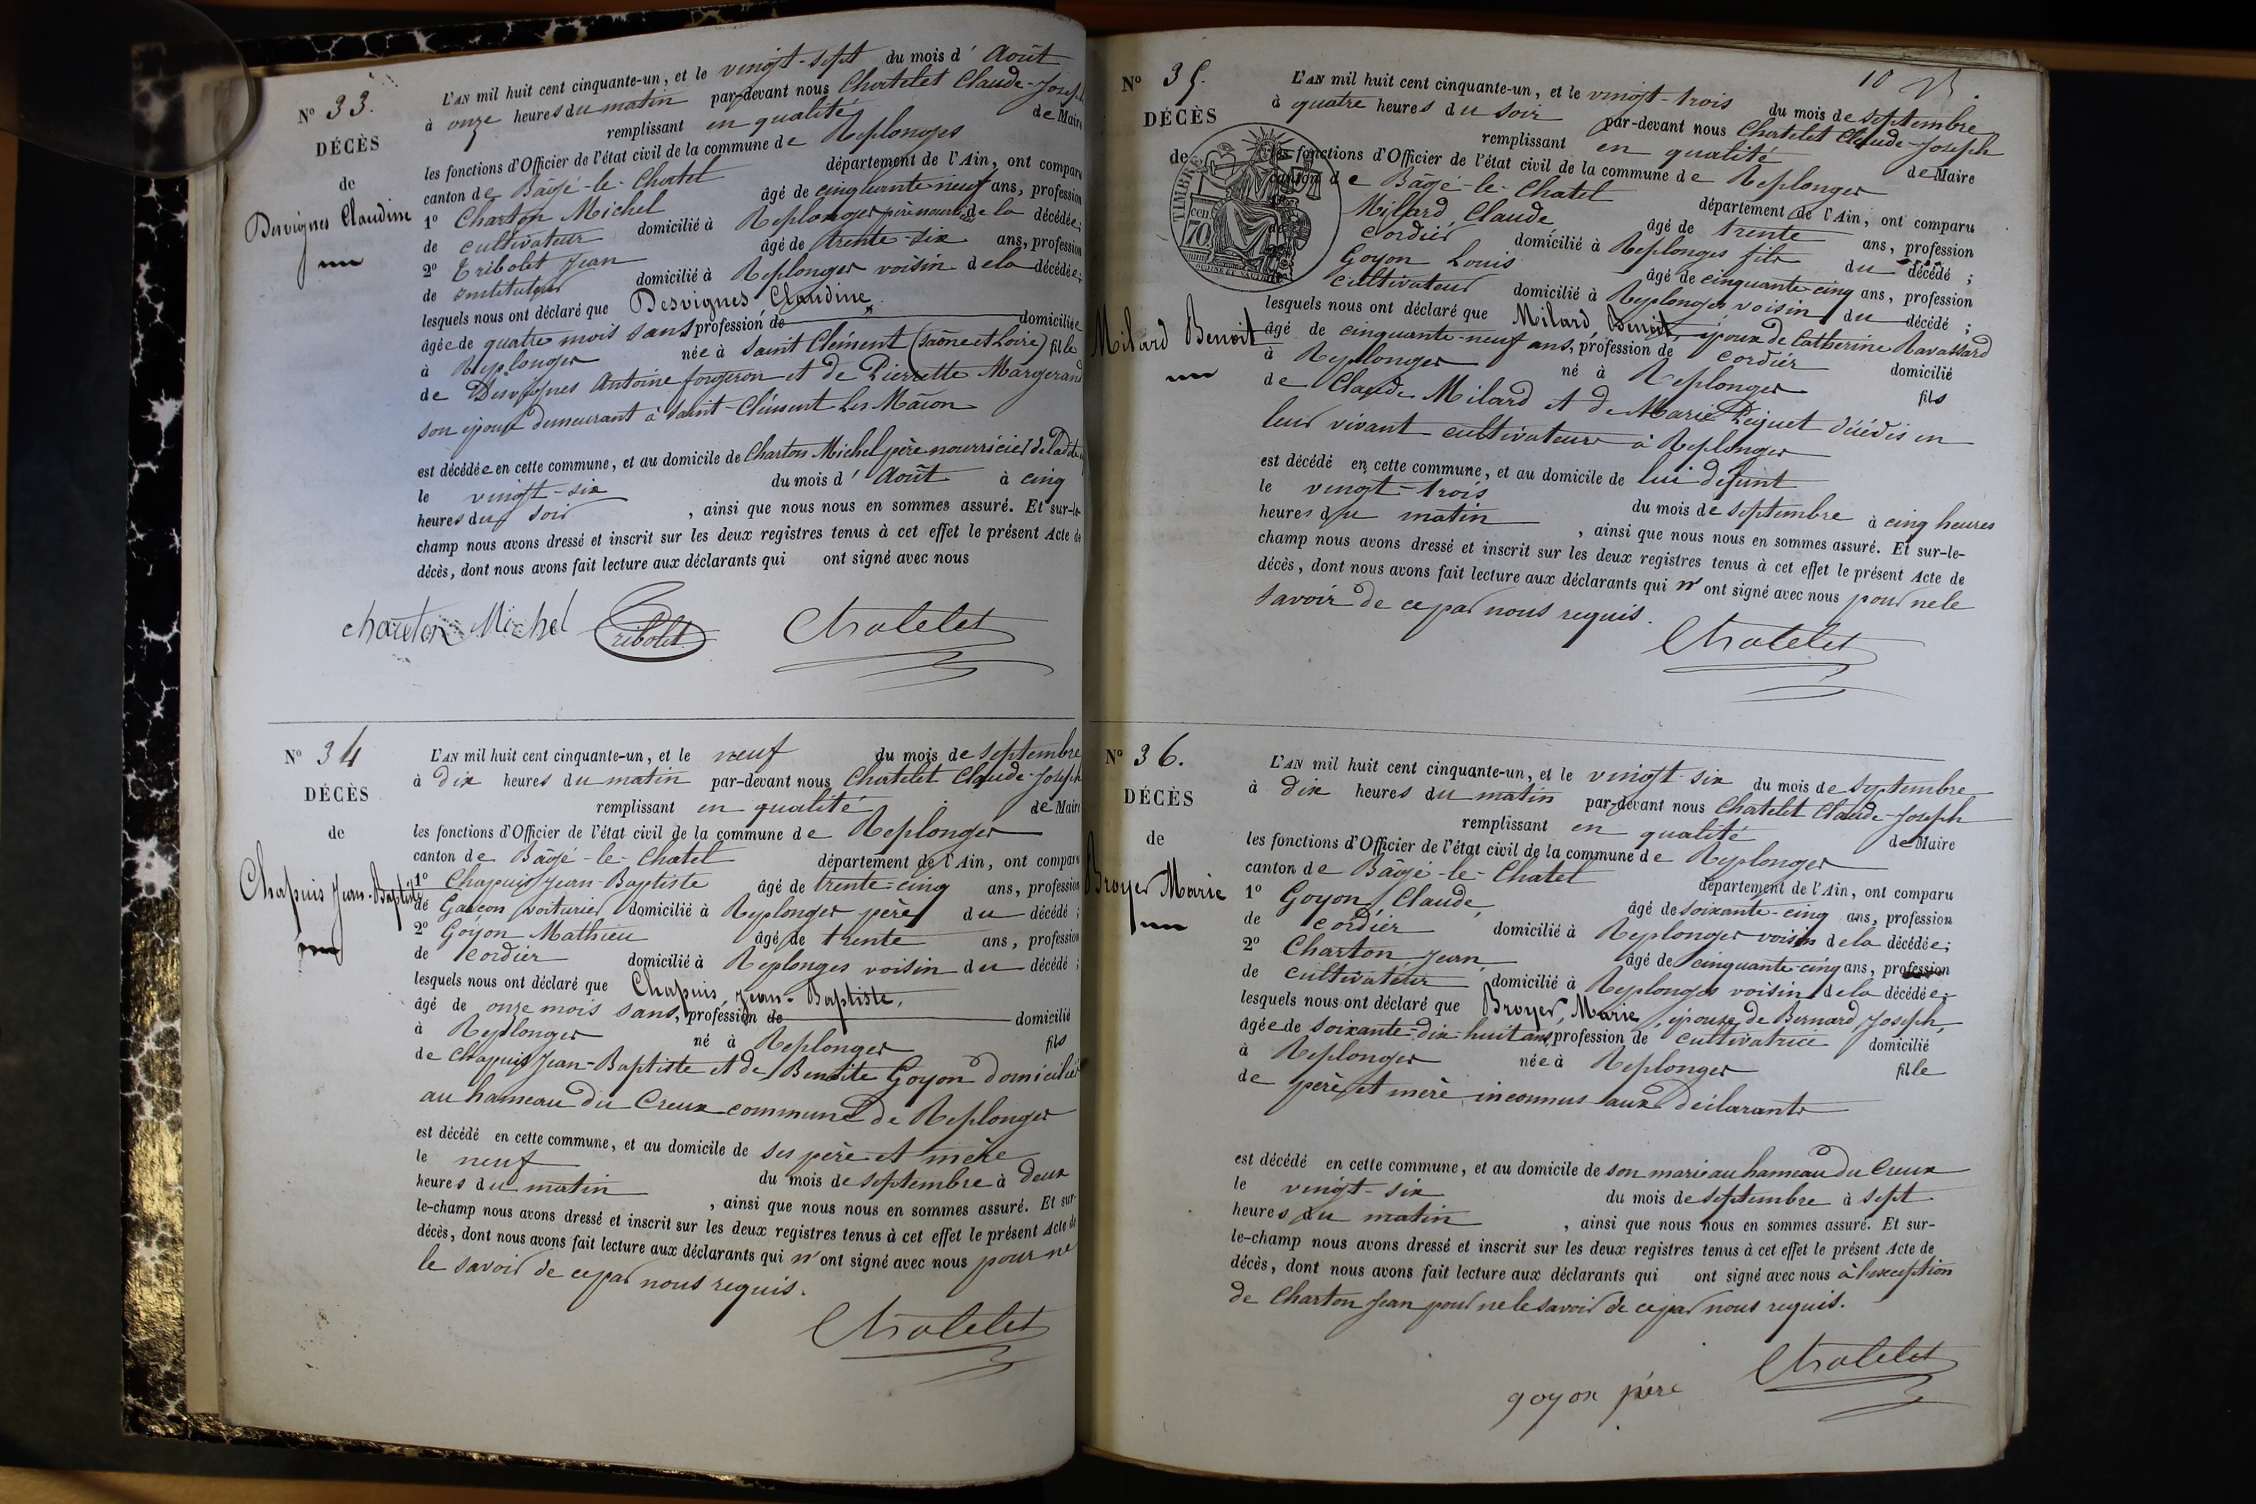 N° 33.
DÉCÈS
de
Desvignes Claudine
L'AN mil huit cent cinquante-un, et le vingt-sept du mois d' Août
à onze heures du matin par-devant nous Chatelet Claude-Joseph
remplissant en qualité de Maire
les fonctions d'Officier de l'état civil de la commune de Replonges
canton de Bâgé-le-Chatel département de l'Ain, ont comparu
1° Charton Michel âgé de cinquante neuf ans, profession
de cultivateur domicilié à Replonges père nourricier de la décédée;
2° Tribolet Jean âgé de trente-six ans, profession
de instituteur domicilié à Replonges voisin de la décédée;
lesquels nous ont déclaré que Desvignes Claudine
âgée de quatre mois sans profession de domiciliée
à Replonges née à Saint Clément (Saône et Loire) fille
de Desvignes Antoine forgeron et de Pierrette Margerand
son épouse demeurant à Saint-Clément les Mâcon
est décédée en cette commune, et au domicile de Charton Michel père nourricier de ladite
le vingt-six du mois d' Août à cinq
heures du soir , ainsi que nous nous en sommes assuré. Et sur-le-
champ nous avons dressé et inscrit sur les deux registres tenus à cet effet le présent Acte de
décès, dont nous avons fait lecture aux déclarants qui ont signé avec nous
charton Michel Tribolet Chatelet
N° 34
DÉCÈS
de
Chapuis Jean-Baptiste
L'AN mil huit cent cinquante-un, et le neuf du mois de septembre
à dix heures du matin par-devant nous Chatelet Claude-Joseph
remplissant en qualité de Maire
les fonctions d'Officier de l'état civil de la commune de Replonges
canton de Bâgé-le-Chatel département de l'Ain, ont comparu
1° Chapuis Jean-Baptiste âgé de trente-cinq ans, profession
de Garcon voiturier domicilié à Replonges père du décédé;
2° Goyon Mathieu âgé de trente ans, profession
de cordier domicilié à Replonges voisin du décédé;
lesquels nous ont déclaré que Chapuis, Jean-Baptiste,
âgé de onze mois sans, profession de domicilié
à Replonges né à Replonges fils
de Chapuis Jean-Baptiste et de Benoite Goyon domiciliés
au hameau du Creux commune de Replonges
est décédé en cette commune, et au domicile de ses père et mère
le neuf du mois de septembre à deux
heures du matin , ainsi que nous nous en sommes assuré. Et sur-
le-champ nous avons dressé et inscrit sur les deux registres tenus à cet effet le présent Acte de
décès, dont nous avons fait lecture aux déclarants qui n'ont signé avec nous pour ne
le savoir de ce par nous requis.
Chatelet
10
N° 35.
DÉCÈS
de
Milard Benoit
TIMBRE
70 cen
L'AN mil huit cent cinquante-un, et le vingt-trois du mois de septembre
à quatre heures du soir par-devant nous Chatelet Claude-Joseph
remplissant en qualité de Maire
les fonctions d'Officier de l'état civil de la commune de Replonges
canton de Bâgé-le-Chatel département de l'Ain, ont comparu
Milard, Claude, âgé de trente ans, profession
cordier domicilié à Replonges fils du décédé;
Goyon Louis âgé de cinquante-cinq ans, profession
cultivateur domicilié à Replonges voisin du décédé;
lesquels nous ont déclaré que Milard, Benoit, époux de Catherine Ravassard
âgé de cinquante-neuf ans, profession de cordier domicilié
à Replonges né à Replonges fils
de Claude Milard et de Marie Péquet décédés en
leur vivant cultivateurs à Replonges
est décédé en cette commune, et au domicile de lui défunt
le vingt-trois du mois de septembre à cinq heures
heures du matin , ainsi que nous nous en sommes assuré. Et sur-le-
champ nous avons dressé et inscrit sur les deux registres tenus à cet effet le présent Acte de
décès, dont nous avons fait lecture aux déclarants qui n'ont signé avec nous pour ne le
savoir de ce par nous requis.
Chatelet
N° 36.
DÉCÈS
de
Broyer Marie
L'AN mil huit cent cinquante-un, et le vingt-six du mois de septembre
à dix heures du matin par-devant nous Chatelet Claude-Joseph
remplissant en qualité de Maire
les fonctions d'Officier de l'état civil de la commune de Replonges
canton de Bâgé-le-Chatel département de l'Ain, ont comparu
1° Goyon, Claude, âgé de soixante-cinq ans, profession
de cordier domicilié à Replonges voisin de la décédée;
2° Charton Jean, âgé de cinquante-cinq ans, profession
de cultivateur domicilié à Replonges voisin de la décédée;
lesquels nous ont déclaré que Broyer, Marie, épouse de Bernard, Joseph,
âgée de soixante-dix-huit ans, profession de cultivatrice domicilié
à Replonges née à Replonges fille
de père et mère inconnus aux déclarants
est décédé en cette commune, et au domicile de son mari au hameau du Creux
le vingt-six du mois de septembre à sept
heures du matin , ainsi que nous nous en sommes assuré. Et sur-
le-champ nous avons dressé et inscrit sur les deux registres tenus à cet effet le présent Acte de
décès, dont nous avons fait lecture aux déclarants qui ont signé avec nous à l'exception
de Charton Jean pour ne le savoir de ce par nous requis.
Chatelet
goyon père